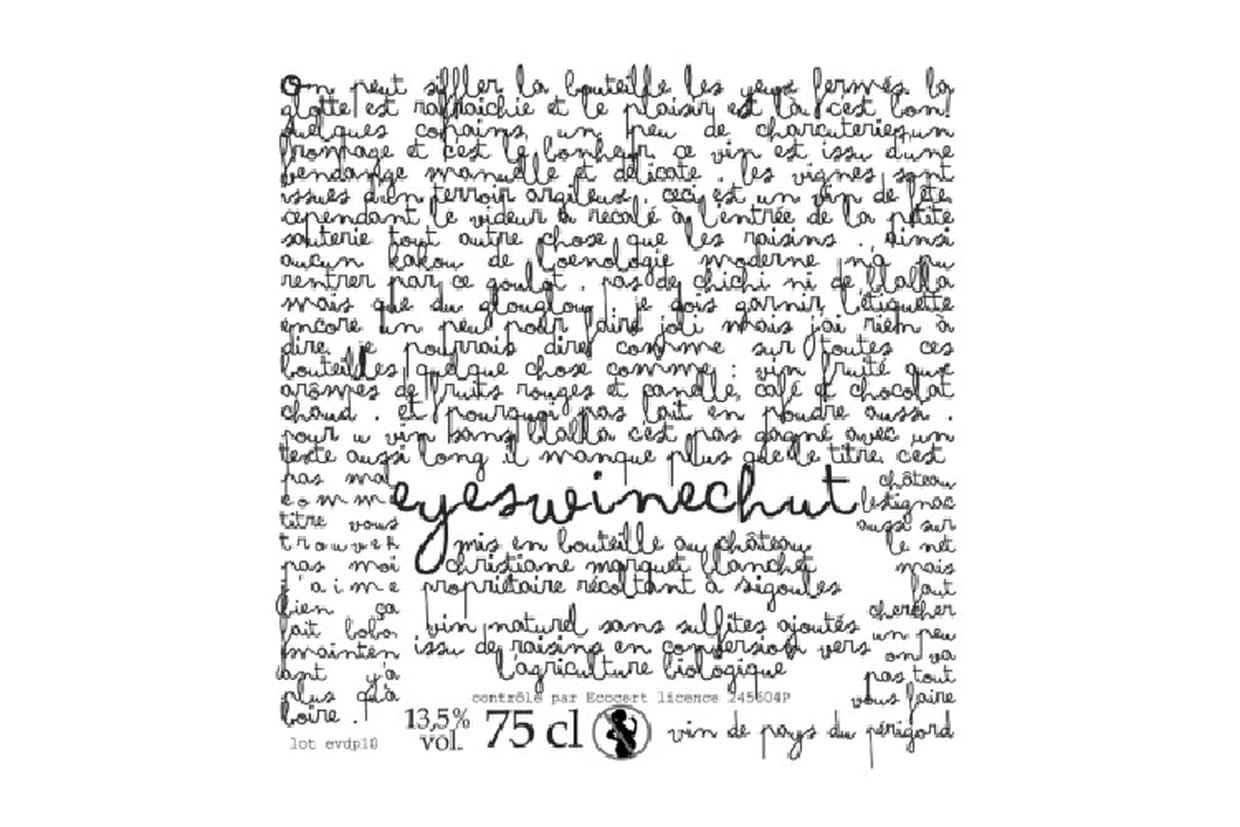 On peut siffler la bouteille les yeux fermés la
glotte est rafraichie et le plaisir est là, c'est bon!
quelques copains, un peu de charcuteries, un
fromage et c'est le bonheur. ce vin est issu d'une
vendange manuelle et délicate. les vignes sont
issues d'un terroir argileux. ceci est un vin de fête.
cependant le videur a recalé à l'entrée de la petite
sauterie tout autre chose que les raisins. ainsi
aucun kakou de l'oenologie moderne n'a pu
rentrer par ce goulot. pas de chichi ni de blabla
mais que du glouglou, je dois garnir l'étiquette
encore un peu pour faire joli mais j'ai rien à
dire. je pourrais dire comme sur toutes ces
bouteilles quelque chose comme: vin fruité aux
arômes de fruits rouges et canelle, café et chocolat
chaud. et pourquoi pas lait en poudre aussi.
pour u vin sans blabla c'est pas gagné avec un
texte aussi long il manque plus que le titre, c'est
pas mal
comme
titre vous
trouvez
pas moi
j'aime
bien ça
fait bobo
maintenant y'a
plus qu'à
boire.
eyeswinechut
mis en bouteille au château
christiane marquet blanchet
propriétaire récoltant à sigoules
vin naturel sans sulfites ajoutés
issu de raisins en conversion vers
l'agriculture biologique
château
lestignac
aussi sur
le net
mais
faut
chercher
un peu
on va
pas tout
vous faire
contrôlé par Ecocert licence 245604P
13,5% vol. 75 cl
vin de pays du périgord
lot evdp10